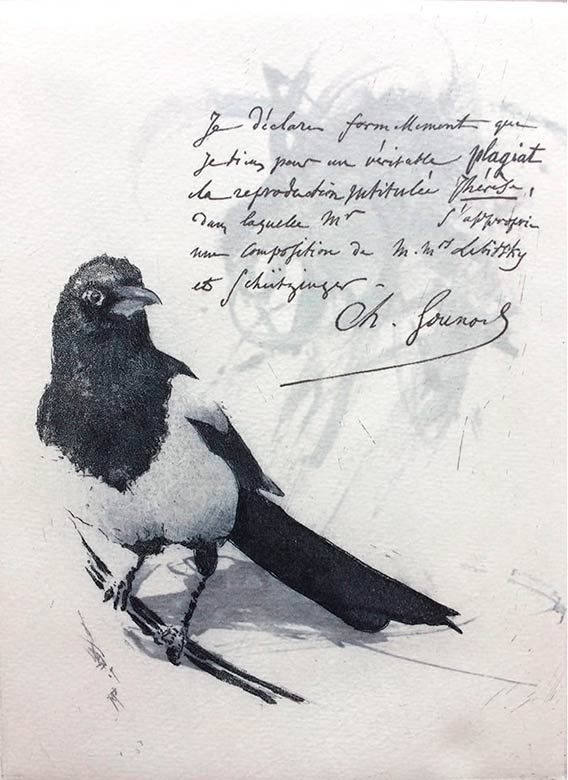 Je déclare formellement que
je tiens pour un véritable plagiat
la reproduction intitulée Thérèse,
dans laquelle Mr s'approprie
une composition de M. Mrs
et Schützinger -
Ch. Gounod